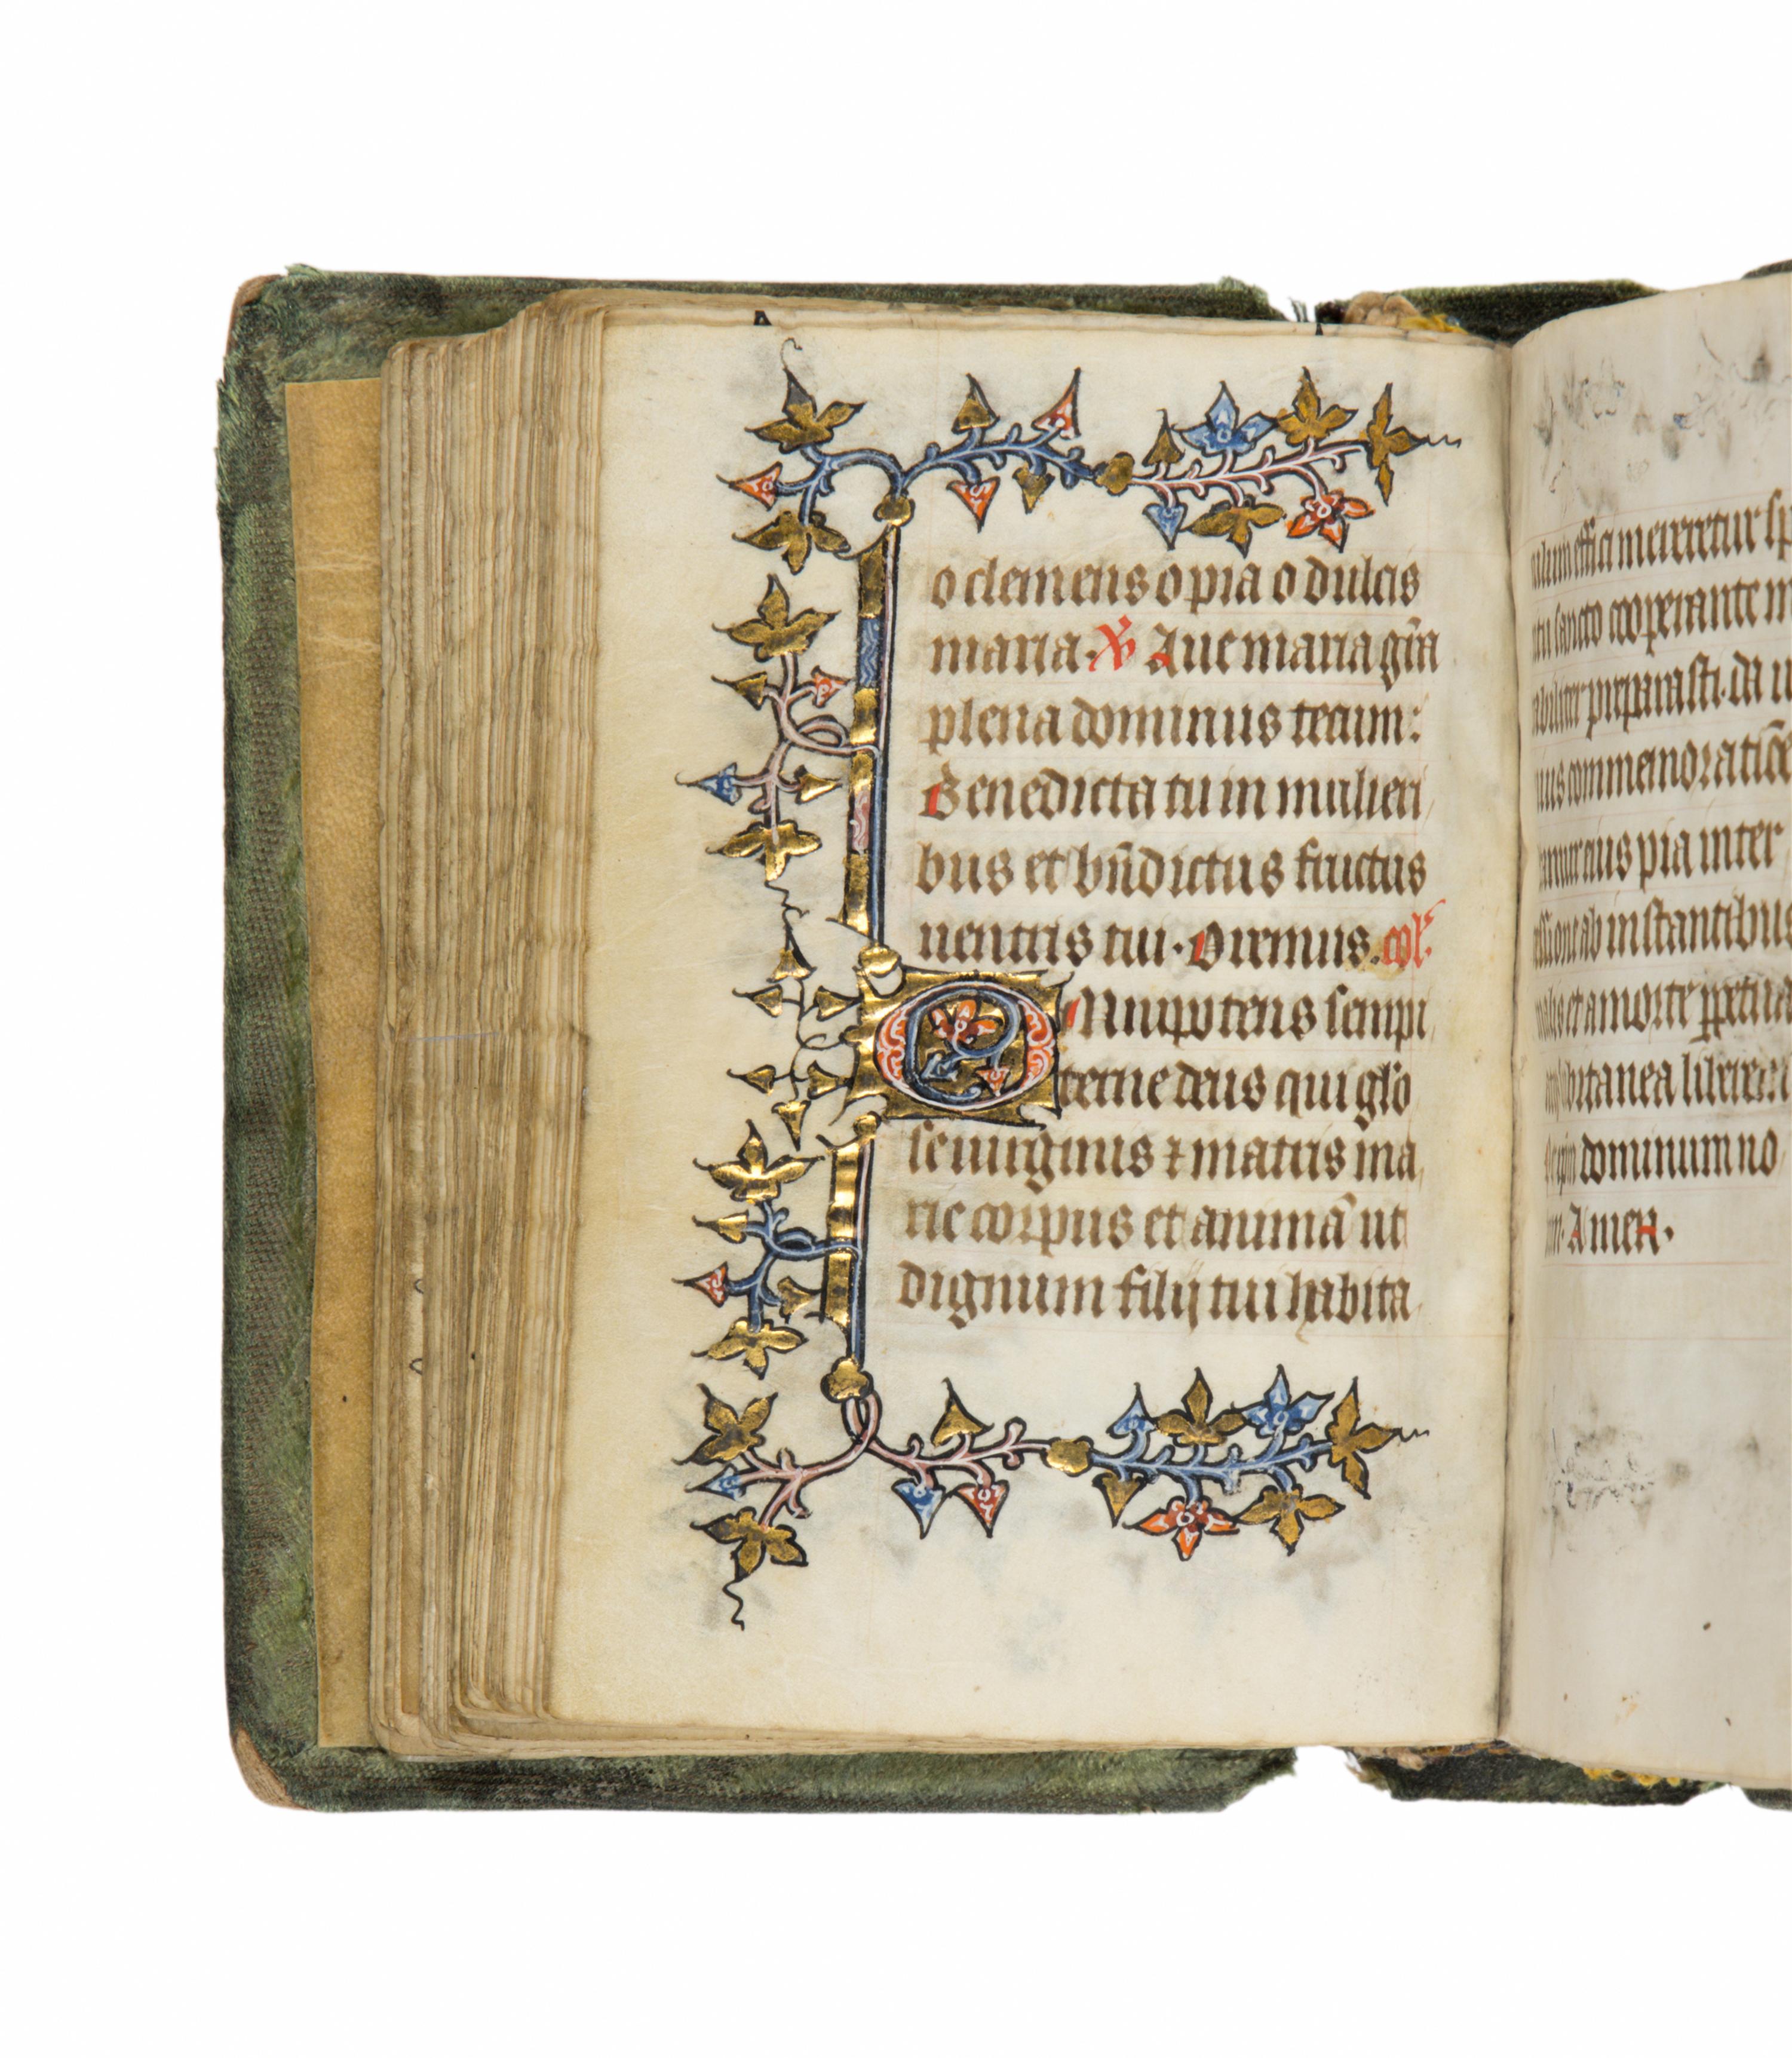 o clemens o pia o dulcis
maria. ℣ Aue maria gr̃a
plena dominus tecum:
Benedicta tu in mulieri
bus et bñdictus fructus
uentris tui. Oremus. col'.
OMnipotens sempi
terne deus qui glo
se uirginis ⁊ matris ma
rie corpus et animã ut
dignum filij tui habita
effici mereretur sp
sancto cooperante m
preparasti. da u
commemoratiõe
eius pia inter
ab instantibus
et a morte ꝑpetua
liberem
dominum no
Amen.